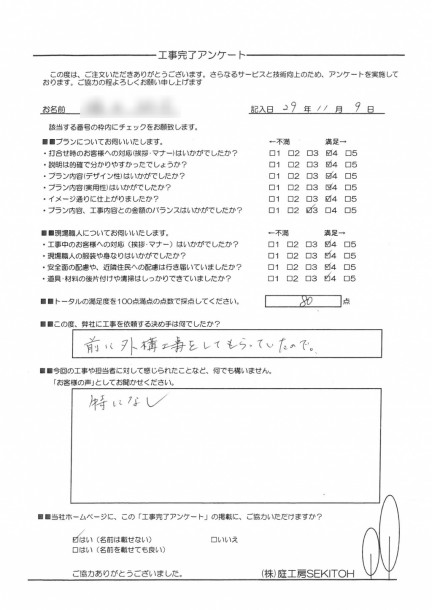 工事完了アンケート
この度は、ご注文いただきありがとうございます。さらなるサービスと技術向上のため、アンケートを実施して
おります。ご協力の程よろしくお願い申し上げます
お名前 記入日 29年 11月 9日
該当する番号の枠内にチェックをお願致します。
■■プランについてお伺いいたします。 ←不満 満足→
・打合せ時のお客様への対応(挨拶・マナー)はいかがでしたか? □1 □2 □3 ☑4 □5
・説明は的確で分かりやすかったでしょうか? □1 □2 □3 ☑4 □5
・プラン内容(デザイン性)はいかがでしたか? □1 □2 □3 ☑4 □5
・プラン内容(実用性)はいかがでしたか? □1 □2 □3 ☑4 □5
・イメージ通りに仕上がりましたか? □1 □2 □3 ☑4 □5
・プラン内容、工事内容との金額のバランスはいかがでしたか? □1 □2 ☑3 □4 □5
■■現場職人についてお伺いいたします。 ←不満 満足→
・工事中のお客様への対応(挨拶・マナー)はいかがでしたか? □1 □2 □3 ☑4 □5
・現場職人の服装や身なりはいかがでしたか? □1 □2 □3 ☑4 □5
・安全面の配慮や、近隣住民への配慮は行き届いていましたか? □1 □2 □3 ☑4 □5
・道具・材料の後片付けや清掃はしっかりできていましたか? □1 □2 □3 ☑4 □5
■■トータルの満足度を100点満点の点数で採点してください。 80 点
■■この度、弊社に工事を依頼する決め手は何でしたか?
前に外構工事をしてもらっていたので。
■■今回の工事や担当者に対して感じられたことなど、何でも構いません。
「お客様の声」としてお聞かせください。
特になし
■■当社ホームページに、この「工事完了アンケート」の掲載に、ご協力いただけますか?
☑はい(名前は載せない) □いいえ
□はい(名前を載せても良い)
ご協力ありがとうございました。 (株)庭工房SEKITOH